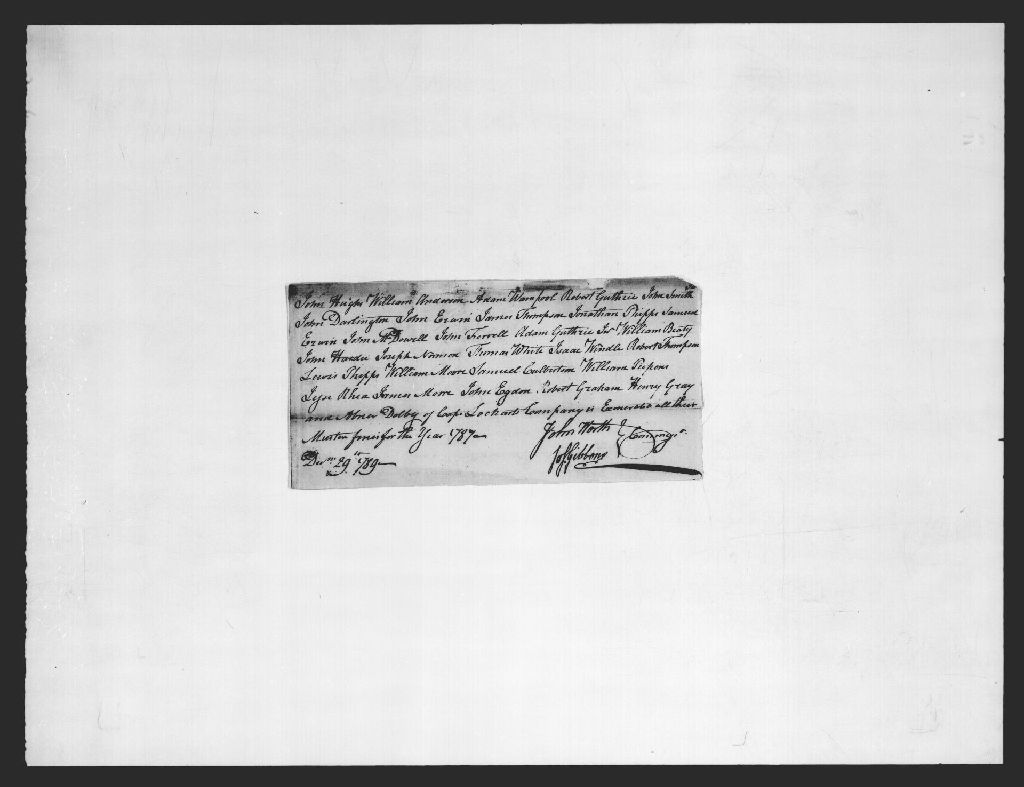 John Hughs William Anderson Adam Warnport Robert Guthrie John Smith
John Darlington John Erwin James Thompson Jonathan Phipps Samuel
Erwin John McDowell John Ferrell Adam Guthrie Jnr William Beaty
John Joseph Thomas White Isaac Windle Robert Thompson
Lewis Phipps William Moore Samuel Culbertson William Pierpons
Rhea James Moore John Egdon Robert Graham Henry Gray
and Abner Dolby of Capt Locharts Company is Exonerated all their
Muster fines for the Year 1787
John Worth
Decm 29 1789
Jos Gibbons